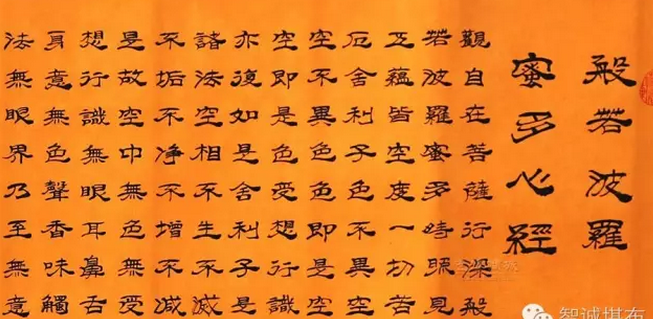 般若波羅
蜜多心經
觀自在菩薩行深般
若波羅蜜多時照見
五蘊皆空度一切苦
厄舍利子色不異空
空不異色色即是空
空即是色受想行識
亦復如是舍利子是
諸法空相不生不滅
不垢不净不增不減
是故空中無色無受
想行識無眼耳鼻舌
身意無色聲香味觸
法無眼界乃至無意
智诚堪布